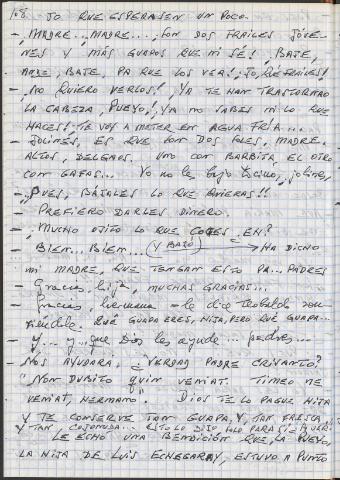 108. JO QUE ESPERASEN UN POCO.
- ¡MADRE... MADRE...! SON DOS FRAILES JÓVE-
NES Y MÁS GUAPOS QUE MI SÉ! BAJE,
MADRE, BAJE, PA QUE LOS VEA! ¡JO, QUÉ FRAILES!
- ¡NO QUIERO VERLOS! ¡YA TE HAN TRASTORNAO
LA CABEZA, PUEYO! ¡YA NO SABES NI LO QUE
HACES! TE VOY A METER EN AGUA FRÍA...
- JOLINES, ES QUE SON DOS, MADRE.
ALTOS, DELGAOS. UNO CON BARBITA, EL OTRO
CON GAFAS... YO NO LE BAJO jolines,
- ¡PUES, BÁJALES LO QUE QUIERAS!!
- PREFIERO DARLES DINERO.
- ¡MUCHO OJITO LO QUE COGES, EH?
- BIEN... BIEN... (Y BAJÓ) → HA DICHO
MI MADRE, QUE TENGAN ESTO PA... PADRES
- Gracias, hija, MUCHAS GRACIAS...
- gracias, hermana - le dice Teobaldo son-
riéndole. QUÉ GUAPA ERES, HIJA, PERO QUÉ GUAPA...
- Y... y... que Dios les ayude... padres...
- NOS AYUDARÁ, ¿VERDAD PADRE CRISANTO?
- "NON DUBITO QUIN VENIAT. TIMEO NE
VENIAT, HERMANO". DIOS TE LO PAGUE HIJA
Y TE CONSERVE TAN GUAPA, Y, TAN FRESCA,
Y TAN, COJONUDA... ESTO LO DIJO SOLO PARA SÍ
LE ECHÓ UNA BENDICIÓN QUE, LA PUEYO,
LA HIJA DE LUIS ECHEGARAY, ESTUVO A PUNTO